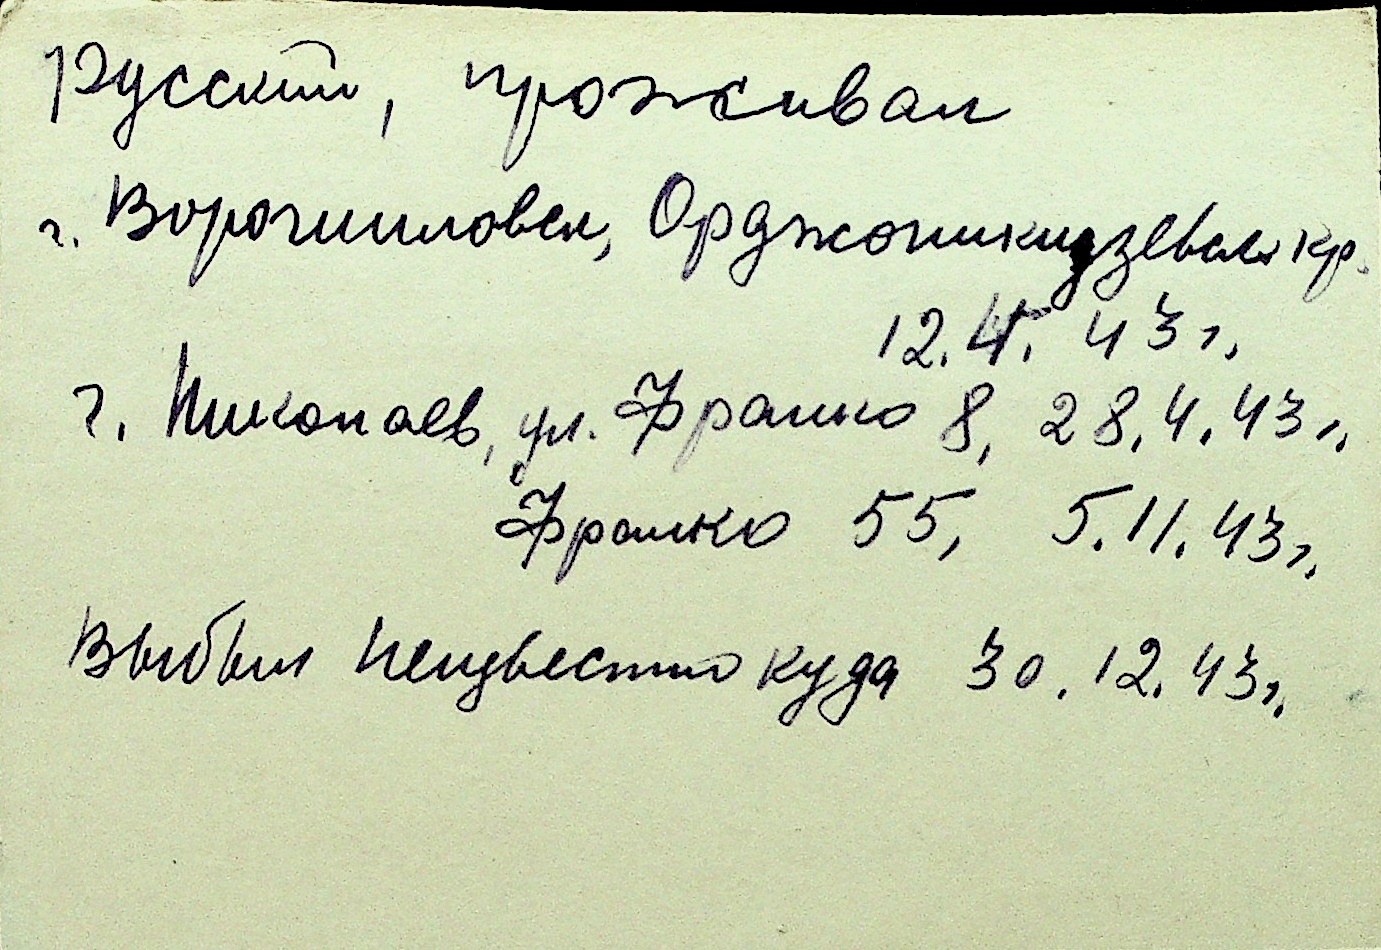 Русский, проживал
г. Ворошиловск, Орджоникидзевск. кр.
12.4. 43г.
г. Николаев, ул. Франко 8, 28.4.43г.
Франко 55, 5.11.43г.
Выбыл неизвестно куда 30.12.43г.